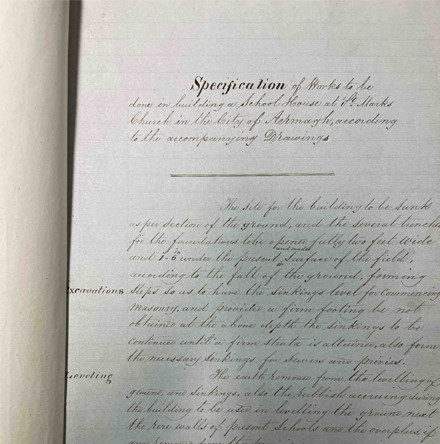 Specification of Works to be
done in building a School House at St. Marks
Church in the City of Armagh, according
to the accompanying Drawings
The site for the building to be sunk
as per section of the ground, and the several trenches
for the foundations to be opened fully two feet wide
and made
and 1-6 under the present surface of the field,
according to the fall of the ground, forming
Excavations
steps so as to have the sinkings level for commencing
masonry, and provided a firm footing be not
obtained at the above depth the sinkings to be
continued until a firm strata is attained, also form
the necessary sinkings for sewers and privies.
Leveling
The earth removed from the levelling of
ground, and sinkings, also the rubbish accruing during
the building to be used in levelling the ground near
the rere walls of present schools and the overplus if